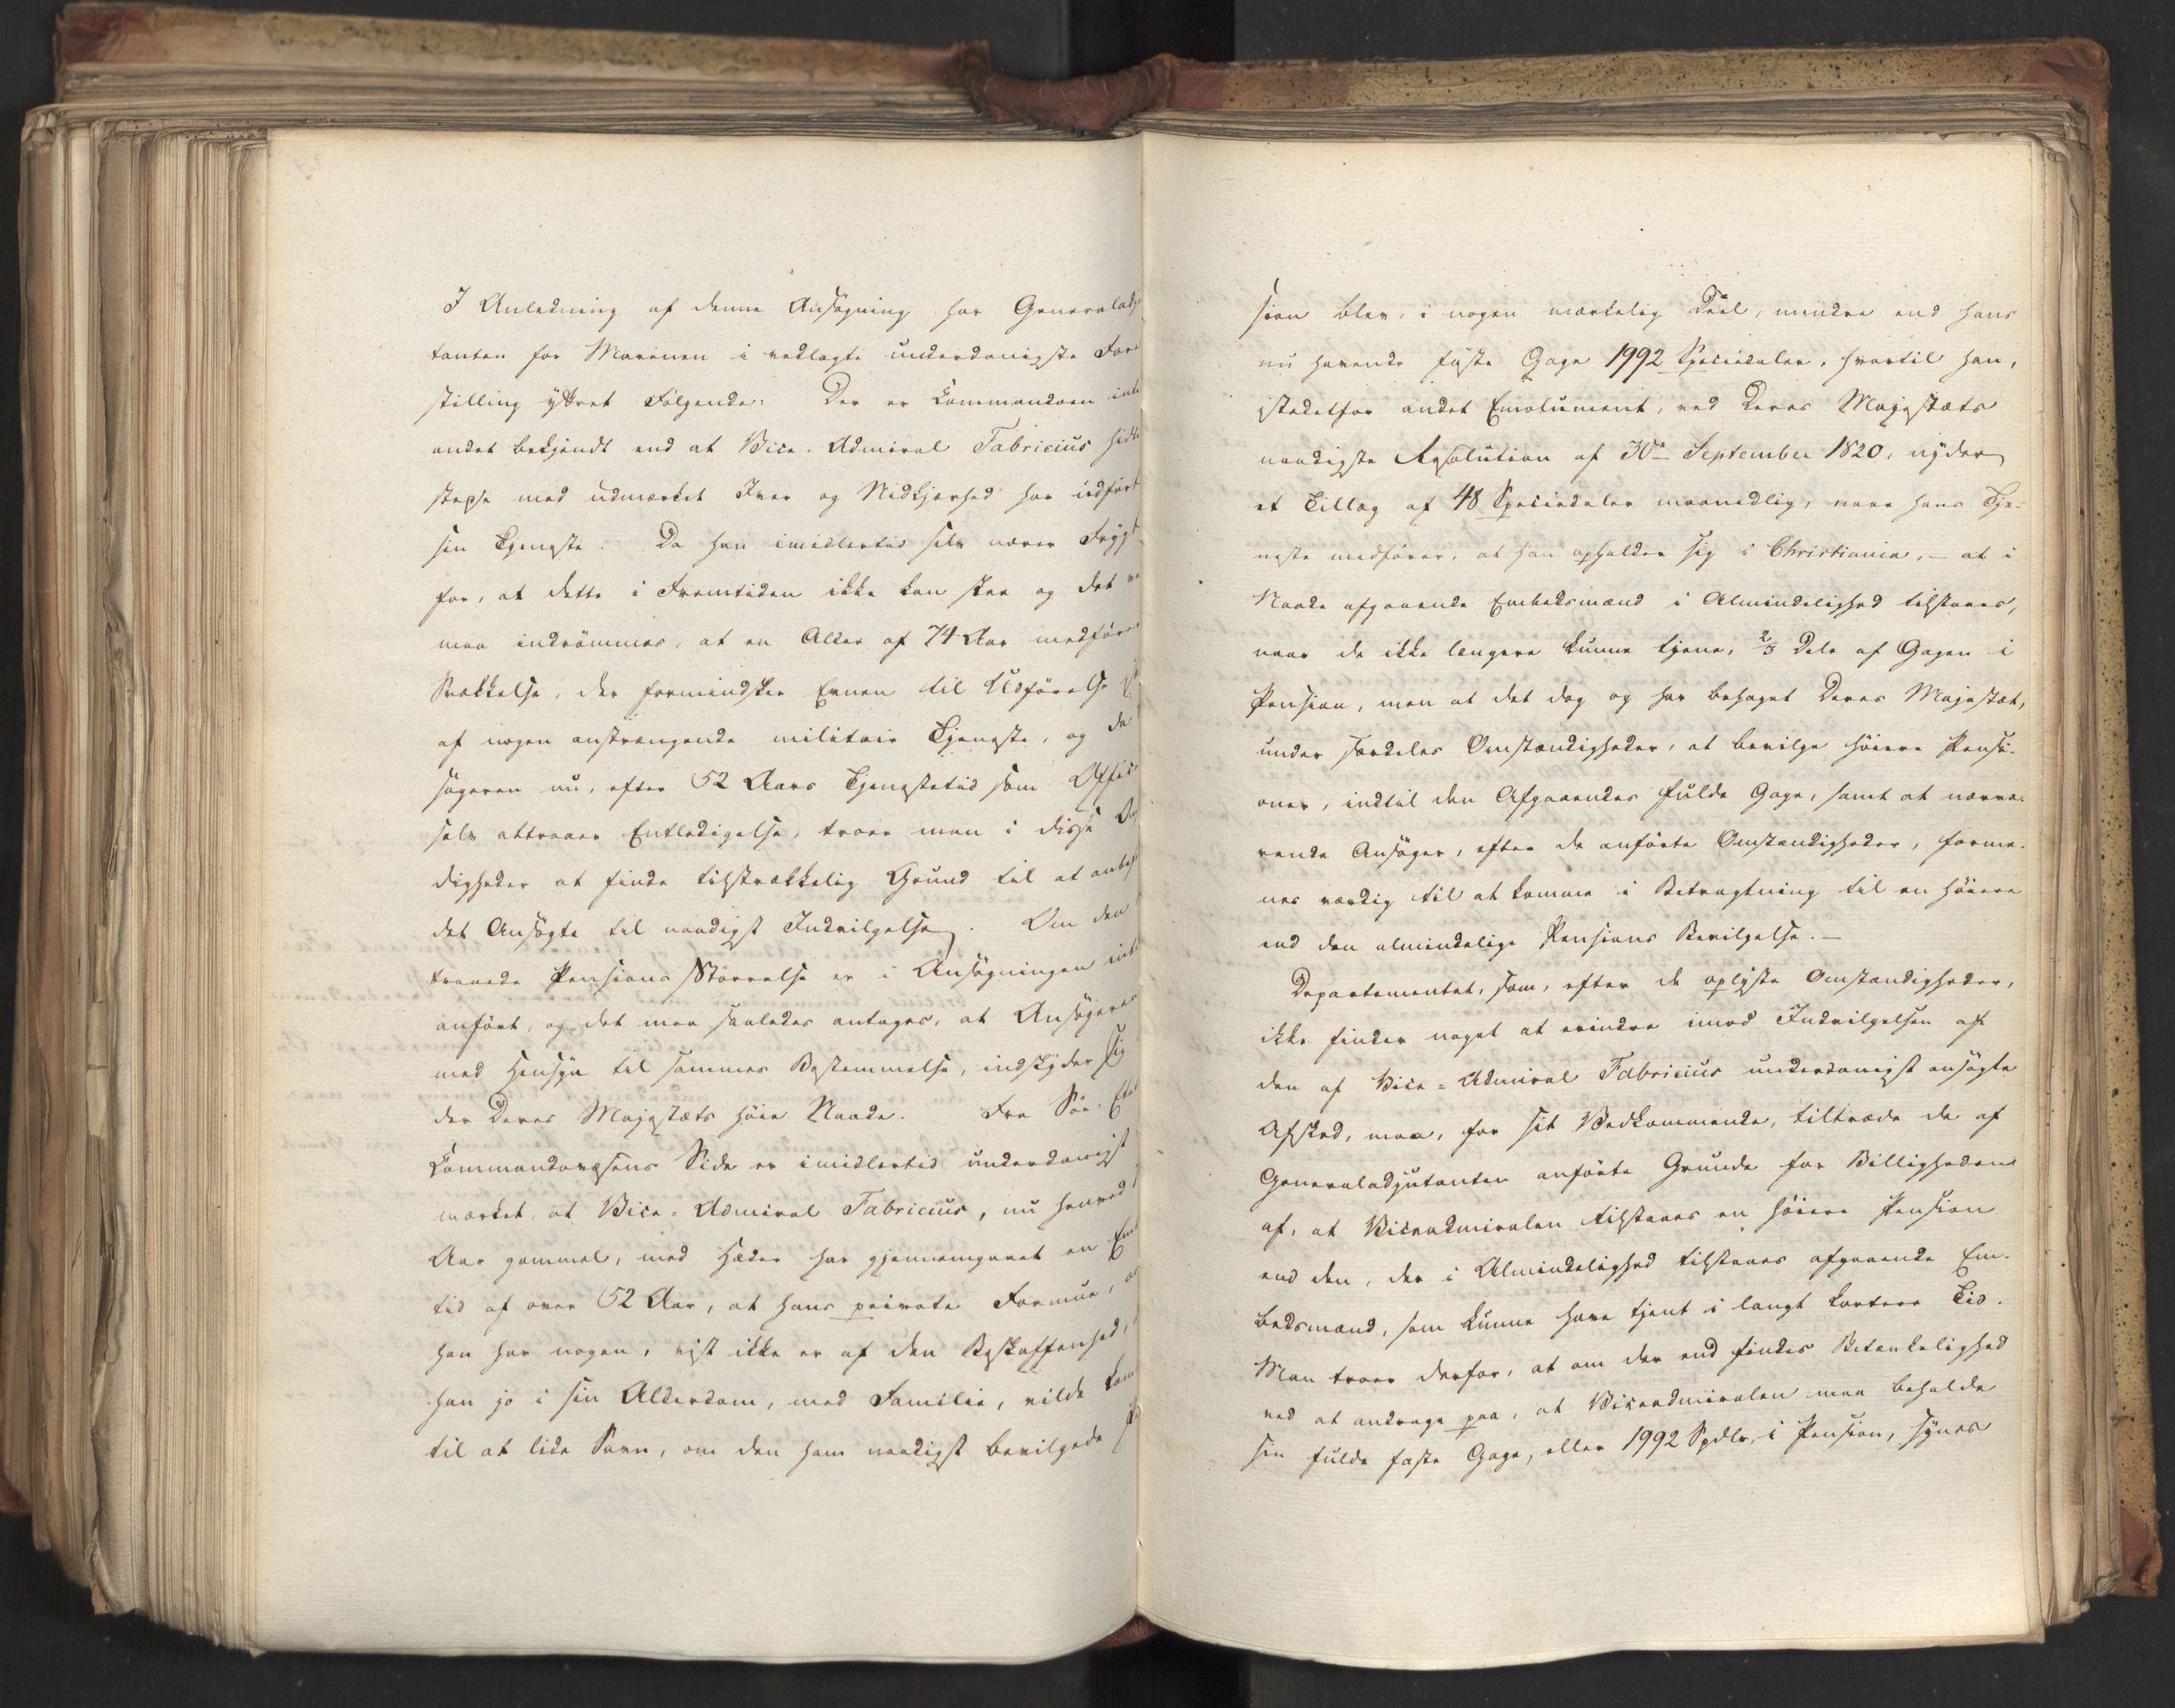 I Anledning af denne Ansøgning har Generaladj
tanten for Marinen i vedlagte underdanigste Fore
stilling yttret Følgende: Der er Commandoen intet
andet bekjendt end at Vice-Admiral Fabricius hidtil
stedse med udmærket Iver og Nidkjærhed har udført
sin Tjeneste. Da han imidlertid selv nærer Frygt
for, at dette i Fremtiden ikke kan skee og det
maa indrømmes, at en Alder af 74 Aar medfører
Svækkelse, der formindsker Evnen til Udførelse
af nogen anstrængende militair Tjeneste, og da
søgeren nu, efter 52 Aars Tjenestetid som Offic
selv attraaer Entledigelse, troer man i disse Om
digheder at finde tilstrækkelig Grund til at anbef
det Ansøgte til naadigst Indvilgelse. Om den
traaede Pensions Størrelse er i Ansøgningen intet
anført, og det maa saaledes antages, at Ansøgeren
med Hensyn til sammes Bestemmelse, indskyder sig
der Deres Majestæts høie Naade. Fra Søe-Etat
Commandoens Side er imidlertid underdanigst
mærket, at Vice-Admiral Fabricius, nu henved
Aar gammel, med Hæder har gjennemgaaet en Em
tid af over 52 Aar, at hans private Formue, om
han har nogen, vist ikke er af den Beskaffenhed,
han jo i sin Alderdom, med Familie, vilde kom
til at lide Savn, om den ham naadigst bevilgede
sion blev, i nogen mærkelig Deel, mindre end hans
nu havende faste Gage 1992 Speciedaler, hvortil han,
istedetfor andet Emolument, ved Deres Majestæts
naadigste Resolution af 30te September 1820, nyder
et Tillæg af 48 Speciedaler maanedlig, naar hans Tje-
neste medfører, at han opholder sig i Christiania, – at i
Naade afgaaende Embedsmænd i Almindelighed tilstaaes,
naar de ikke længere kunne tjene, 2/3 Dele af Gagen i
Pension, men at det dog og har behaget Deres Majestæt,
under særdeles Omstændigheder, at bevilge høiere Pensi-
oner, indtil den Afgaaendes fulde Gage, samt at nærvæ-
rende Ansøger, efter de anførte Omstændigheder, forme-
nes værdig til at komme i Betragtning til en høiere
end den almindelige Pensions Bevilgelse. –
Departementet, som, efter de oplyste Omstændigheder,
ikke finder noget at erindre imod Indvilgelsen af
den af Vice-Admiral Fabricius underdanigst ansøgte
Afsked, maa, for sit Vedkommende, tiltræde de af
Generaladjutanten anførte Grunde for Billigheden
af, at Viceadmiralen tilstaaes en høiere Pension
end den, der i Almindelighed tilstaaes afgaaende Em-
bedsmænd, som kunne have tjent i langt kortere Tid.
Man troer derfor, at om der end findes Betænkelighed
ved at andrage paa, at Viceadmiralen maa beholde
sin fulde faste Gage, eller 1992 Spdlr, i Pension, synes